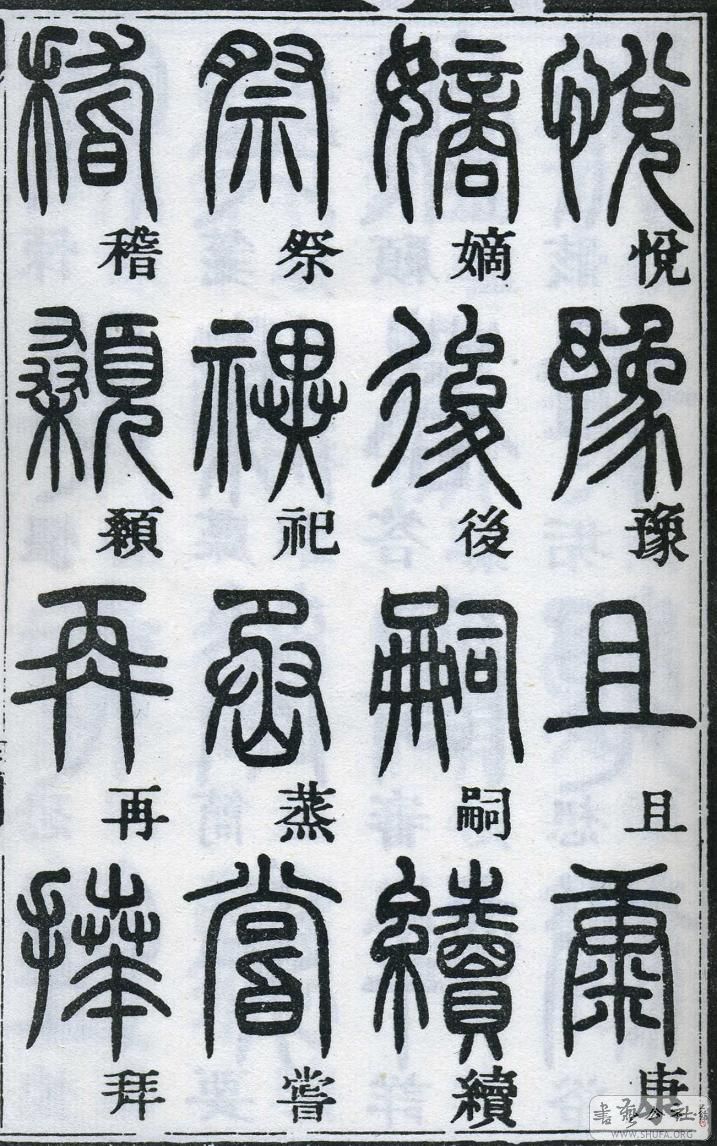 悅豫且康
嫡後嗣續
祭祀蒸嘗
稽顙再拜
書藝公社
WWW.SHUFA.ORG